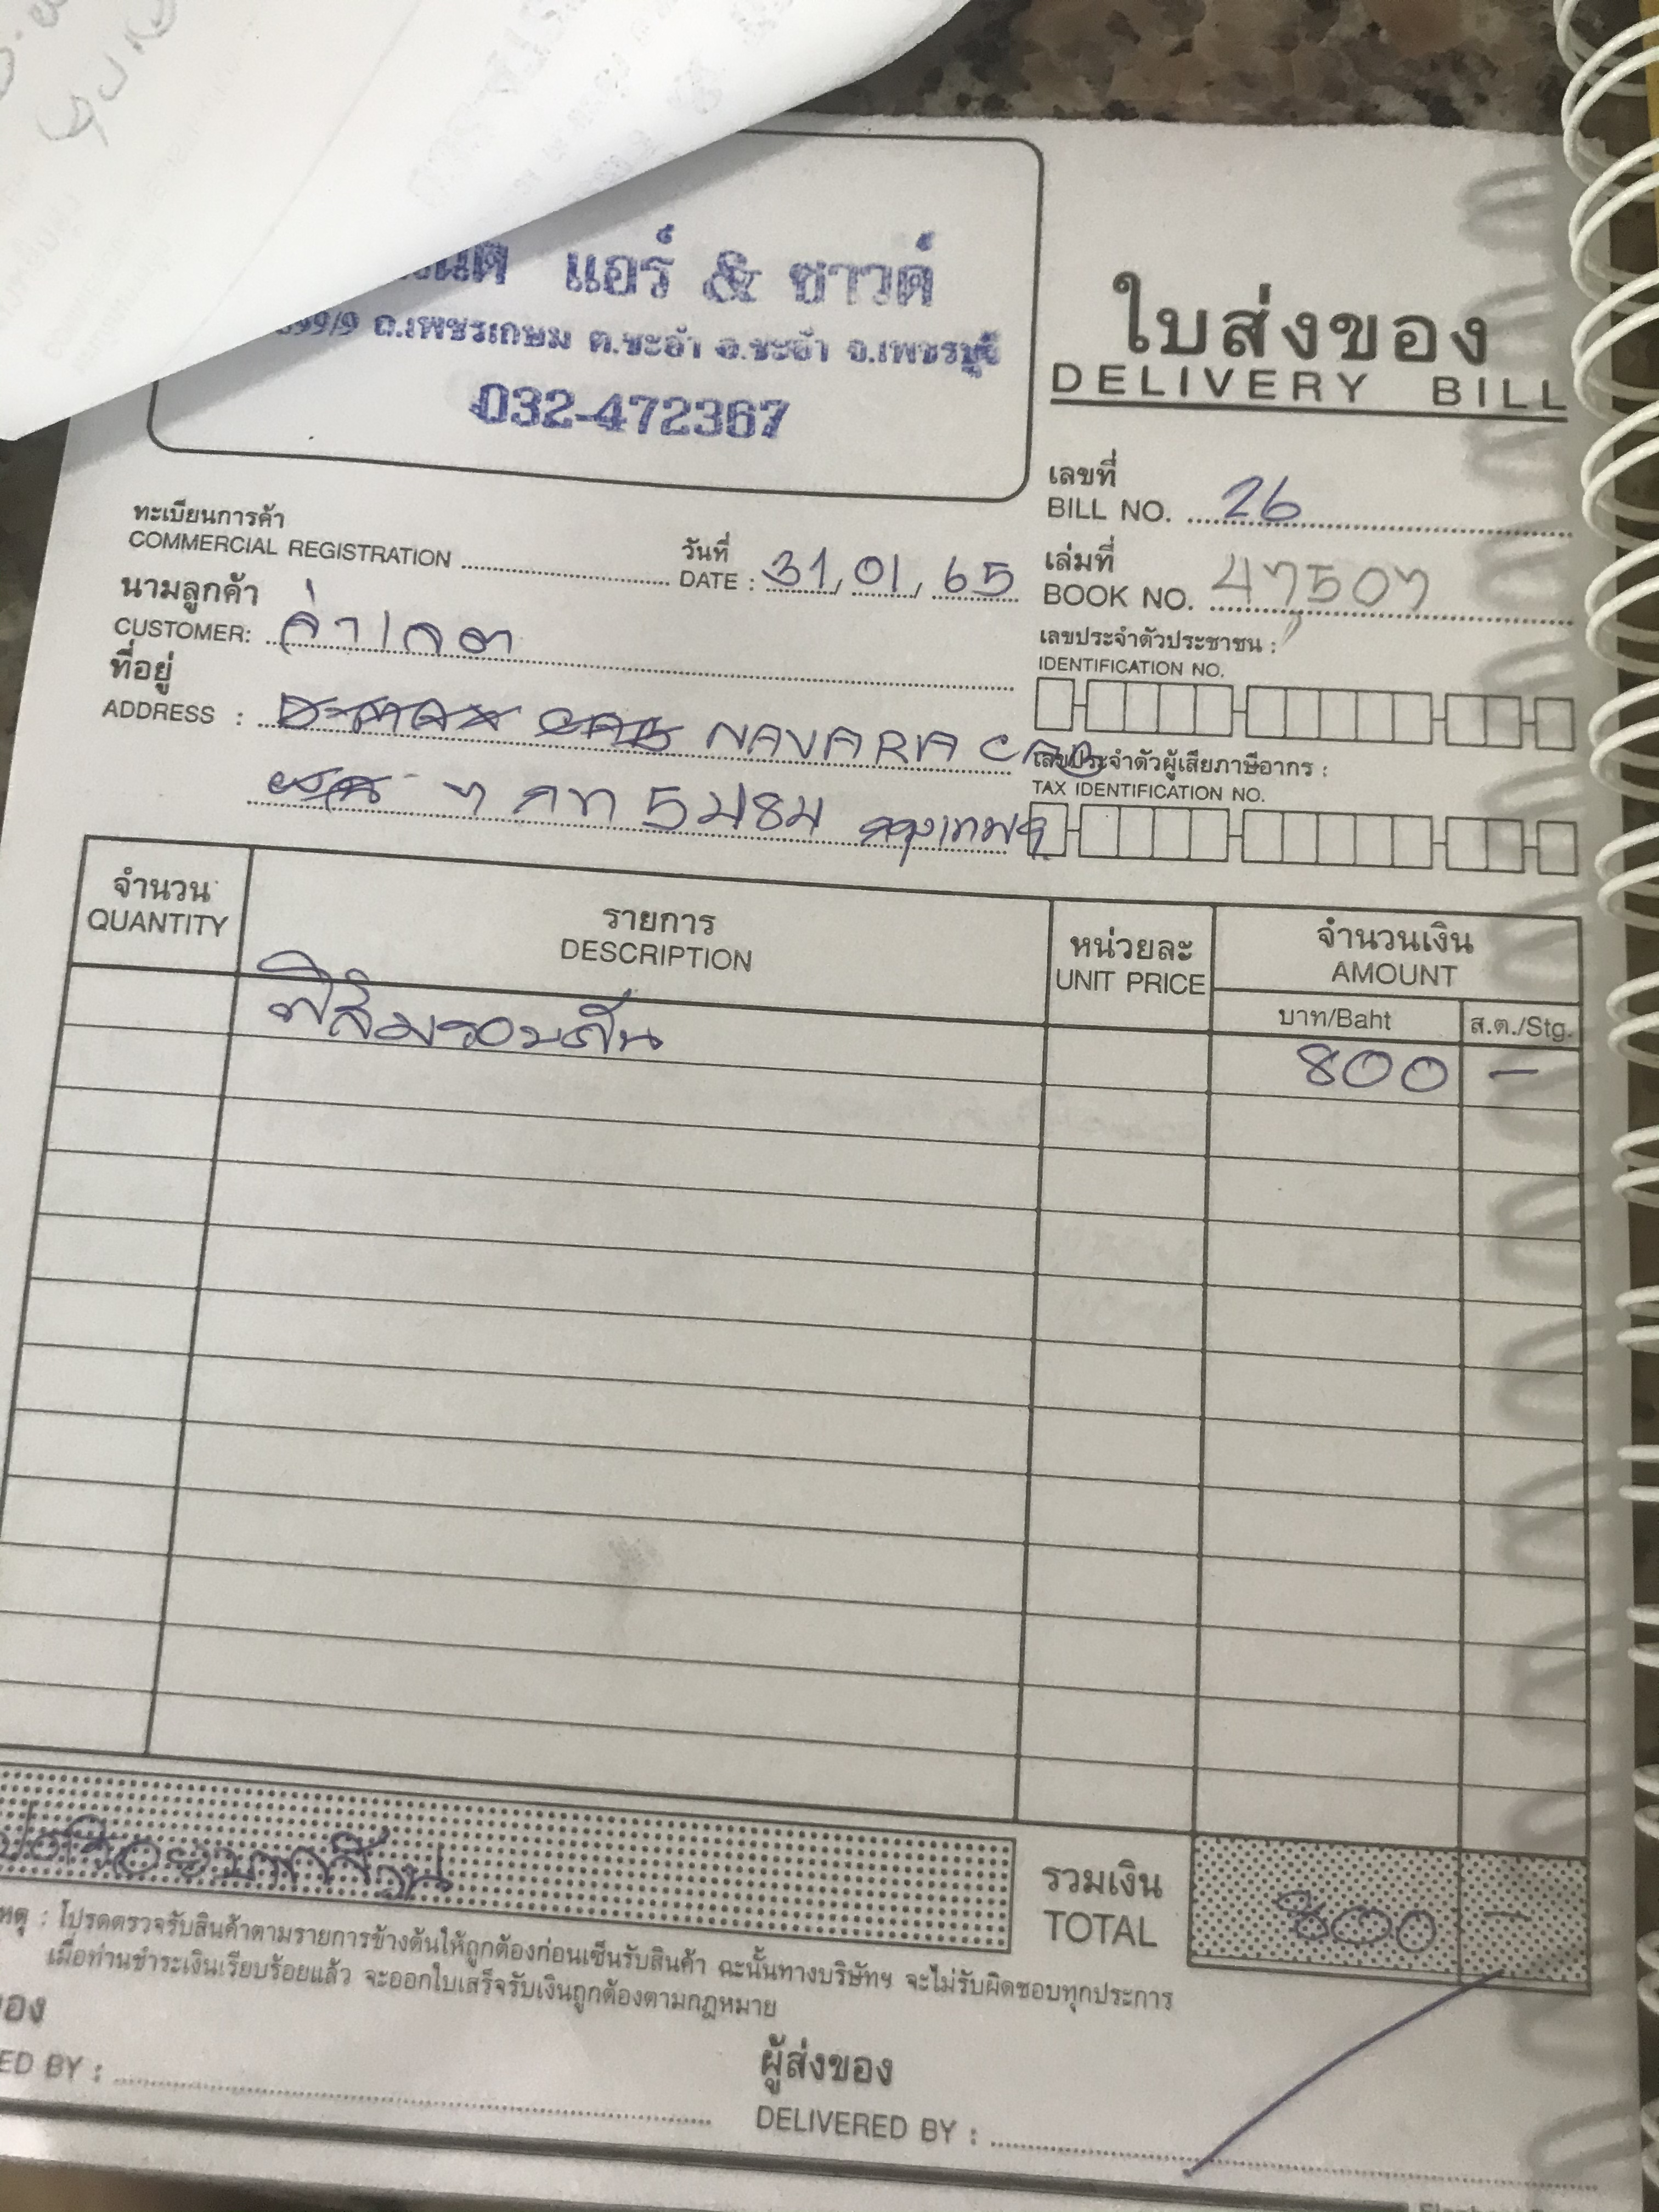 แอร์ & ซาวด์
899/9 ถ.เพชรเกษม ต.ชะอำ อ.ชะอำ จ.เพชรบุรี
032-472367
ใบส่งของ
DELIVERY BILL
เลขที่
BILL NO. 26
ทะเบียนการค้า
COMMERCIAL REGISTRATION
วันที่
DATE : 31, 01, 65
เล่มที่
BOOK NO. 47507
นามลูกค้า
CUSTOMER:
เลขประจำตัวประชาชน :
IDENTIFICATION NO.
ที่อยู่
ADDRESS : NAVARA CAB
เลขประจำตัวผู้เสียภาษีอากร :
TAX IDENTIFICATION NO.
กรุงเทพฯ
จำนวน
QUANTITY
รายการ
DESCRIPTION
หน่วยละ
UNIT PRICE
จำนวนเงิน
AMOUNT
บาท/Baht
ส.ต./Stg.
ฟิล์มรอบคัน 800 -
แปดร้อยบาทถ้วน
รวมเงิน
TOTAL
800 -
เหตุ : โปรดตรวจรับสินค้าตามรายการข้างต้นให้ถูกต้องก่อนเซ็นรับสินค้า ฉะนั้นทางบริษัทฯ จะไม่รับผิดชอบทุกประการ
เมื่อท่านชำระเงินเรียบร้อยแล้ว จะออกใบเสร็จรับเงินถูกต้องตามกฎหมาย
ของ
ED BY :
ผู้ส่งของ
DELIVERED BY :